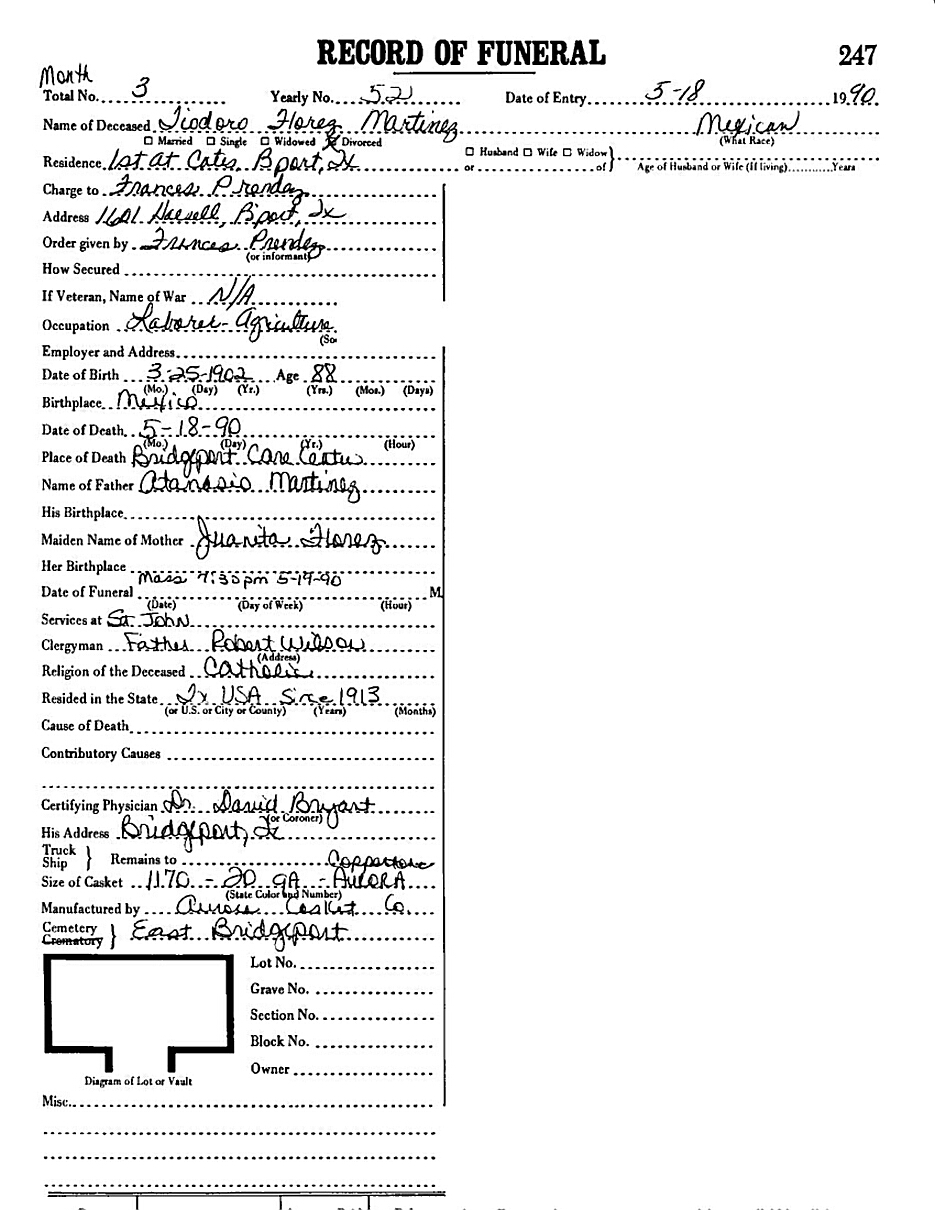 RECORD OF FUNERAL 247
Month
Total No. 3 Yearly No. 52 Date of Entry 5-18 1990
Name of Deceased Tiodoro Florez Martinez Mexican
☐ Married ☐ Single ☐ Widowed ☒ Divorced (What Race)
Residence 1st at Cates, B'port, Tx ☐ Husband ☐ Wife ☐ Widow
or of Age of Husband or Wife (If living) Years
Charge to Frances Prendez
Address B'port, Tx
Order given by Frances Prendez
(or informant)
How Secured
If Veteran, Name of War N/A
Occupation Laborer - Agriculture
(So
Employer and Address
Date of Birth 3-25-1902 Age 88
(Mo.) (Day) (Yr.) (Yrs.) (Mos.) (Days)
Birthplace Mexico
Date of Death 5-18-90
(Mo.) (Day) (Yr.) (Hour)
Place of Death Bridgeport Care Center
Name of Father Atanasio Martinez
His Birthplace
Maiden Name of Mother Juanita Florez
Her Birthplace
Mass 7:30 pm 5-19-90
Date of Funeral M
(Date) (Day of Week) (Hour)
Services at St. John
Clergyman Father Robert Wilson
(Address)
Religion of the Deceased Catholic
Resided in the State Tx USA Since 1913
(or U.S. or City or County) (Years) (Months)
Cause of Death
Contributory Causes
Certifying Physician Dr. David Bryant
(or Coroner)
His Address Bridgeport, Tx
Truck
Ship } Remains to Coppertone
Size of Casket 1170 - 20 GA - AURORA
(State Color and Number)
Manufactured by Aurora Casket Co.
Cemetery
Crematory } East Bridgeport
Lot No.
Grave No.
Section No.
Block No.
Owner
Diagram of Lot or Vault
Misc.